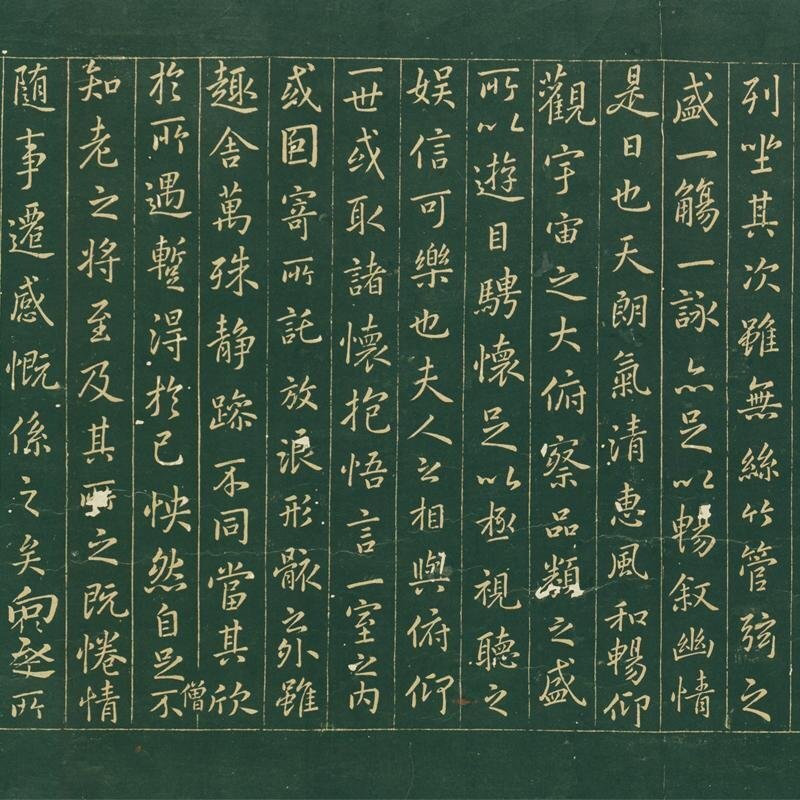 列坐其次雖無絲竹管弦之
盛一觴一詠亦足以暢叙幽情
是日也天朗氣清惠風和暢仰
觀宇宙之大俯察品類之盛
所以遊目騁懷足以極視聽之
娱信可樂也夫人之相與俯仰
一世或取諸懷抱悟言一室之内
或因寄所託放浪形骸之外雖
趣舍萬殊静躁不同當其欣
僧
於所遇暫得於己怏然自足不
知老之將至及其所之既惓情
随事遷感慨係之矣向之所